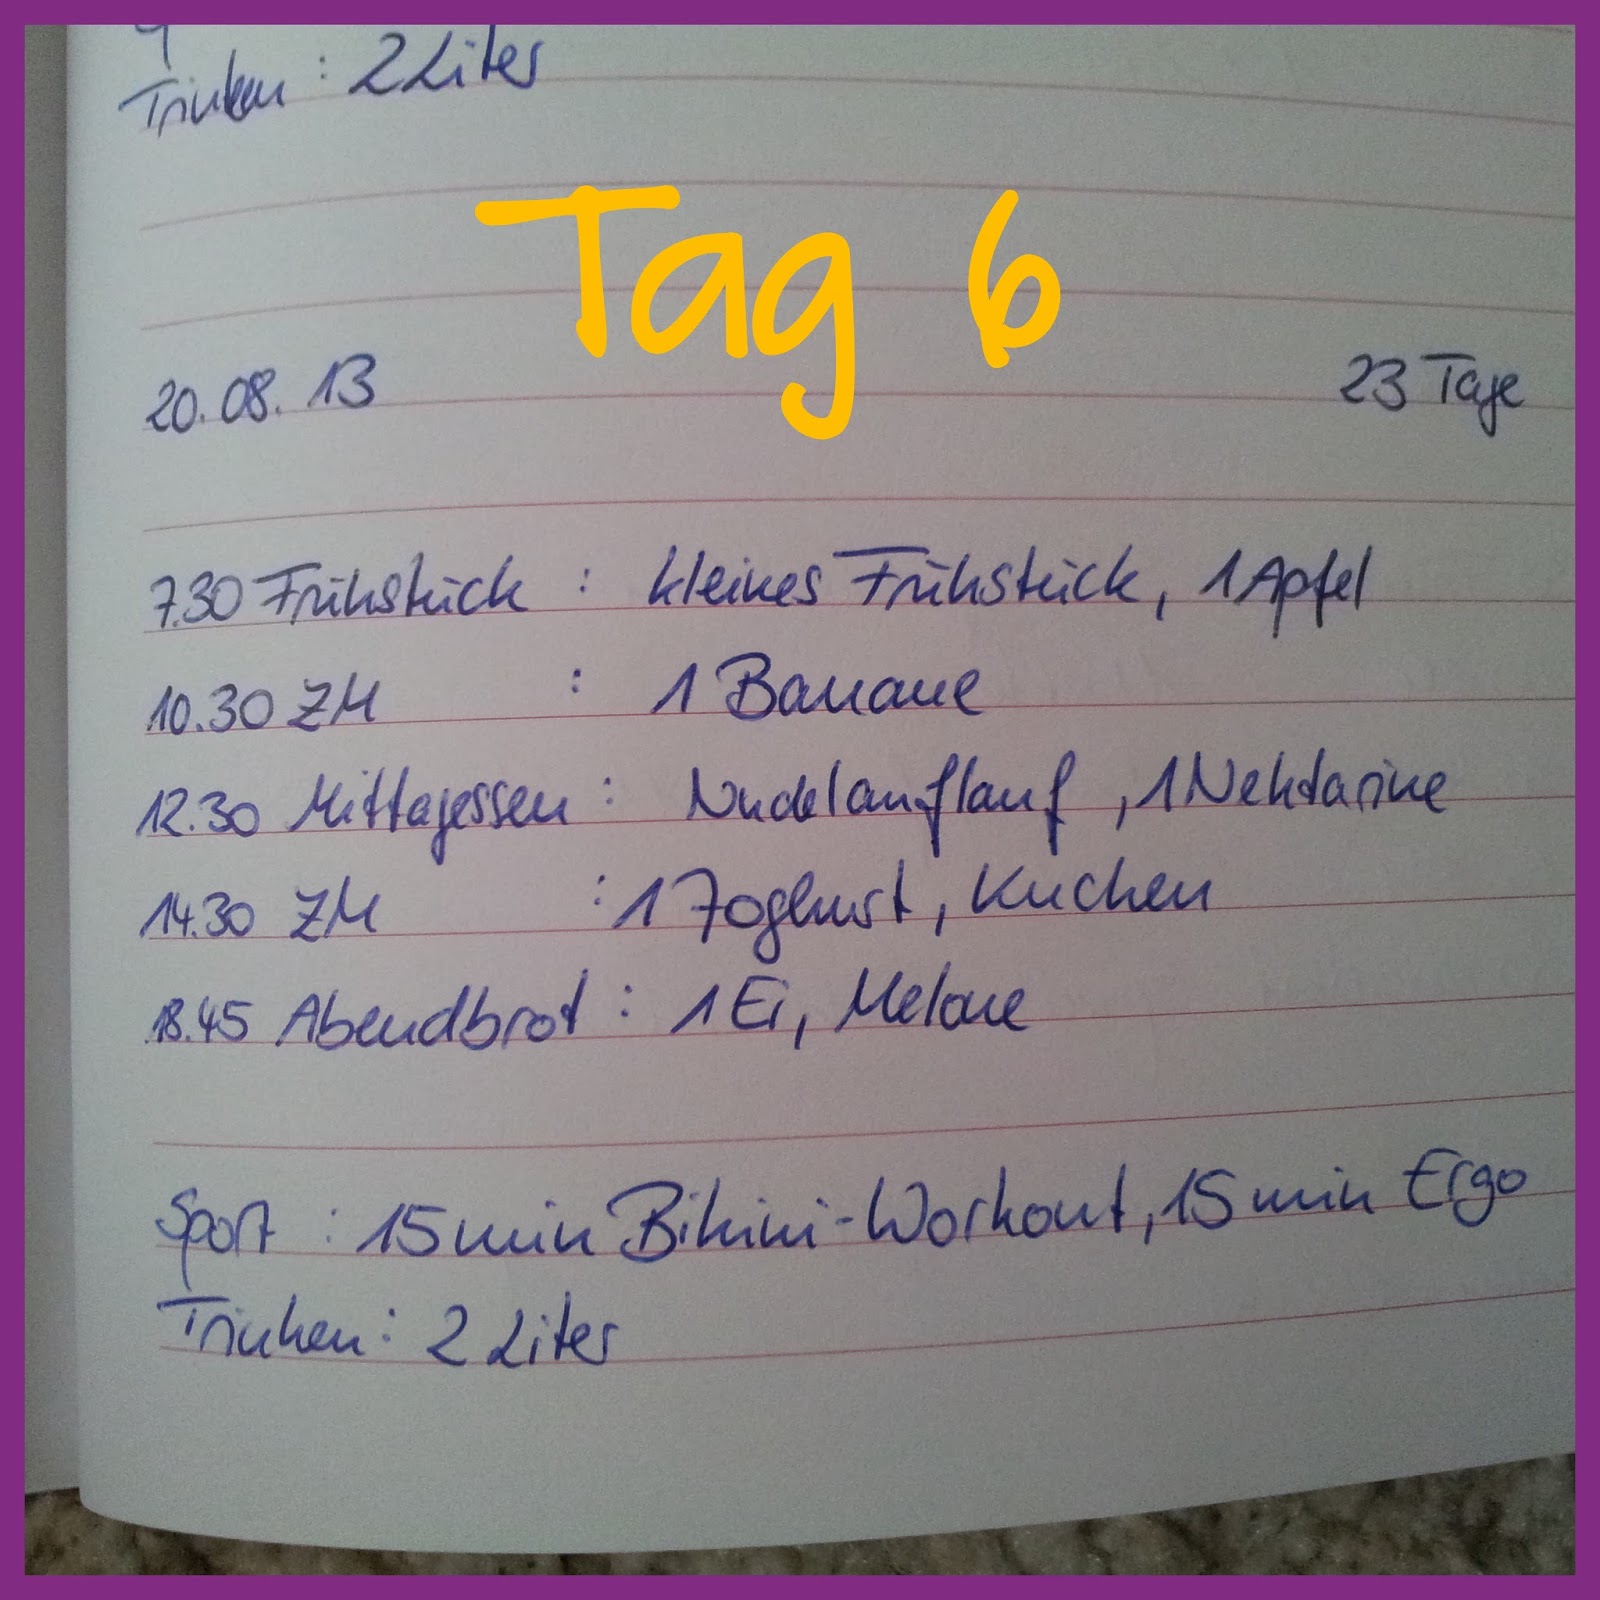 Trinken : 2 Liter
Tag 6
20.08.13 23 Tage
7.30 Frühstück : kleines Frühstück, 1 Apfel
10.30 ZM : 1 Banane
12.30 Mittagessen : Nudelauflauf, 1 Nektarine
14.30 ZM : 1 Joghurt, Kuchen
18.45 Abendbrot : 1 Ei, Melone
Sport : 15 min Bikini-Workout, 15 min Ergo
Trinken : 2 Liter